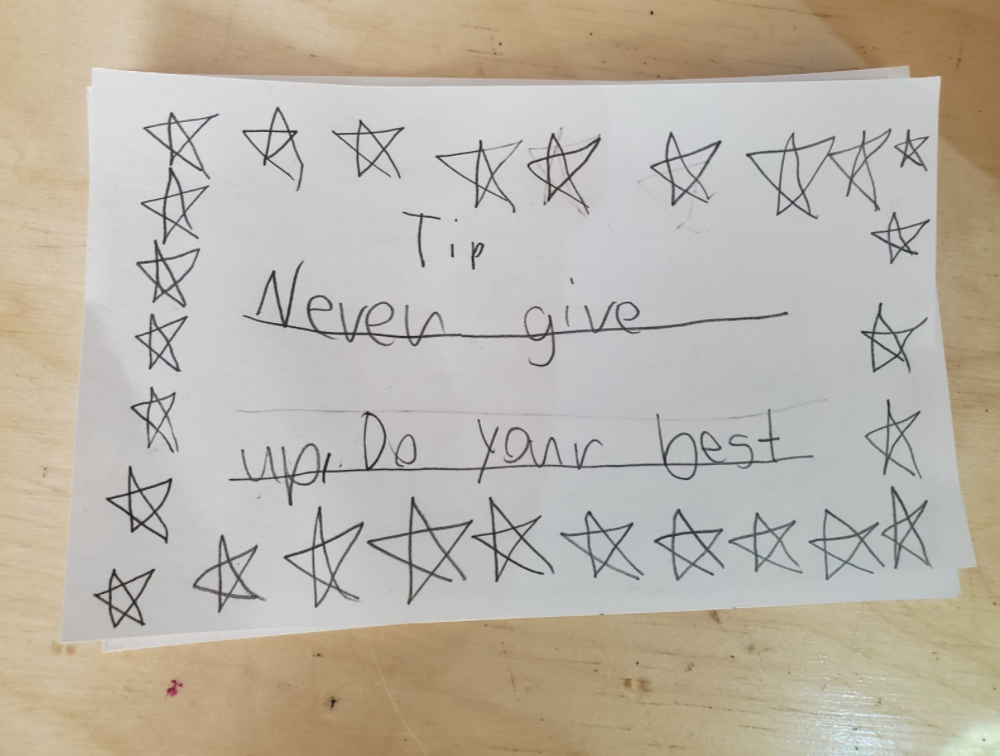 Tip
Never give
up. Do your best